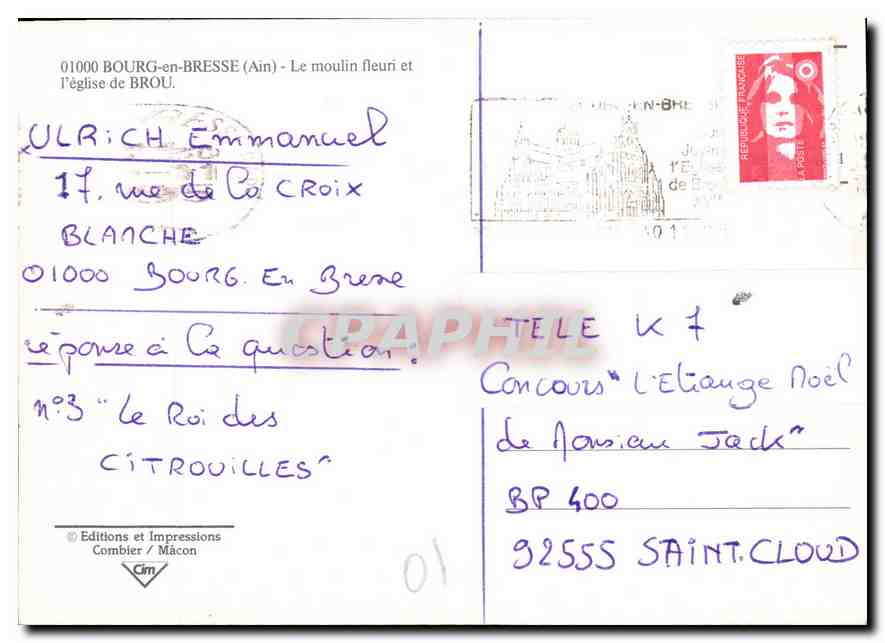 01000 BOURG-en-BRESSE (Ain) - Le moulin fleuri et
l'église de BROU.
ULRiCH Emmanuel
17, rue de la CROix
BLANCHE
01000 BOURG. En Bresse
réponse à la question :
n°3 "Le Roi des
CiTROUiLLES"
© Editions et Impressions
Combier / Mâcon
Cim
01
EN-BRES
de B
RÉPUBLIQUE FRANÇAISE
LA POSTE
CPAPHIL
TELE K 7
Concours "L'Etrange Noël
de Monsieur Jack"
BP 400
92555 SAiNT.CLOUD